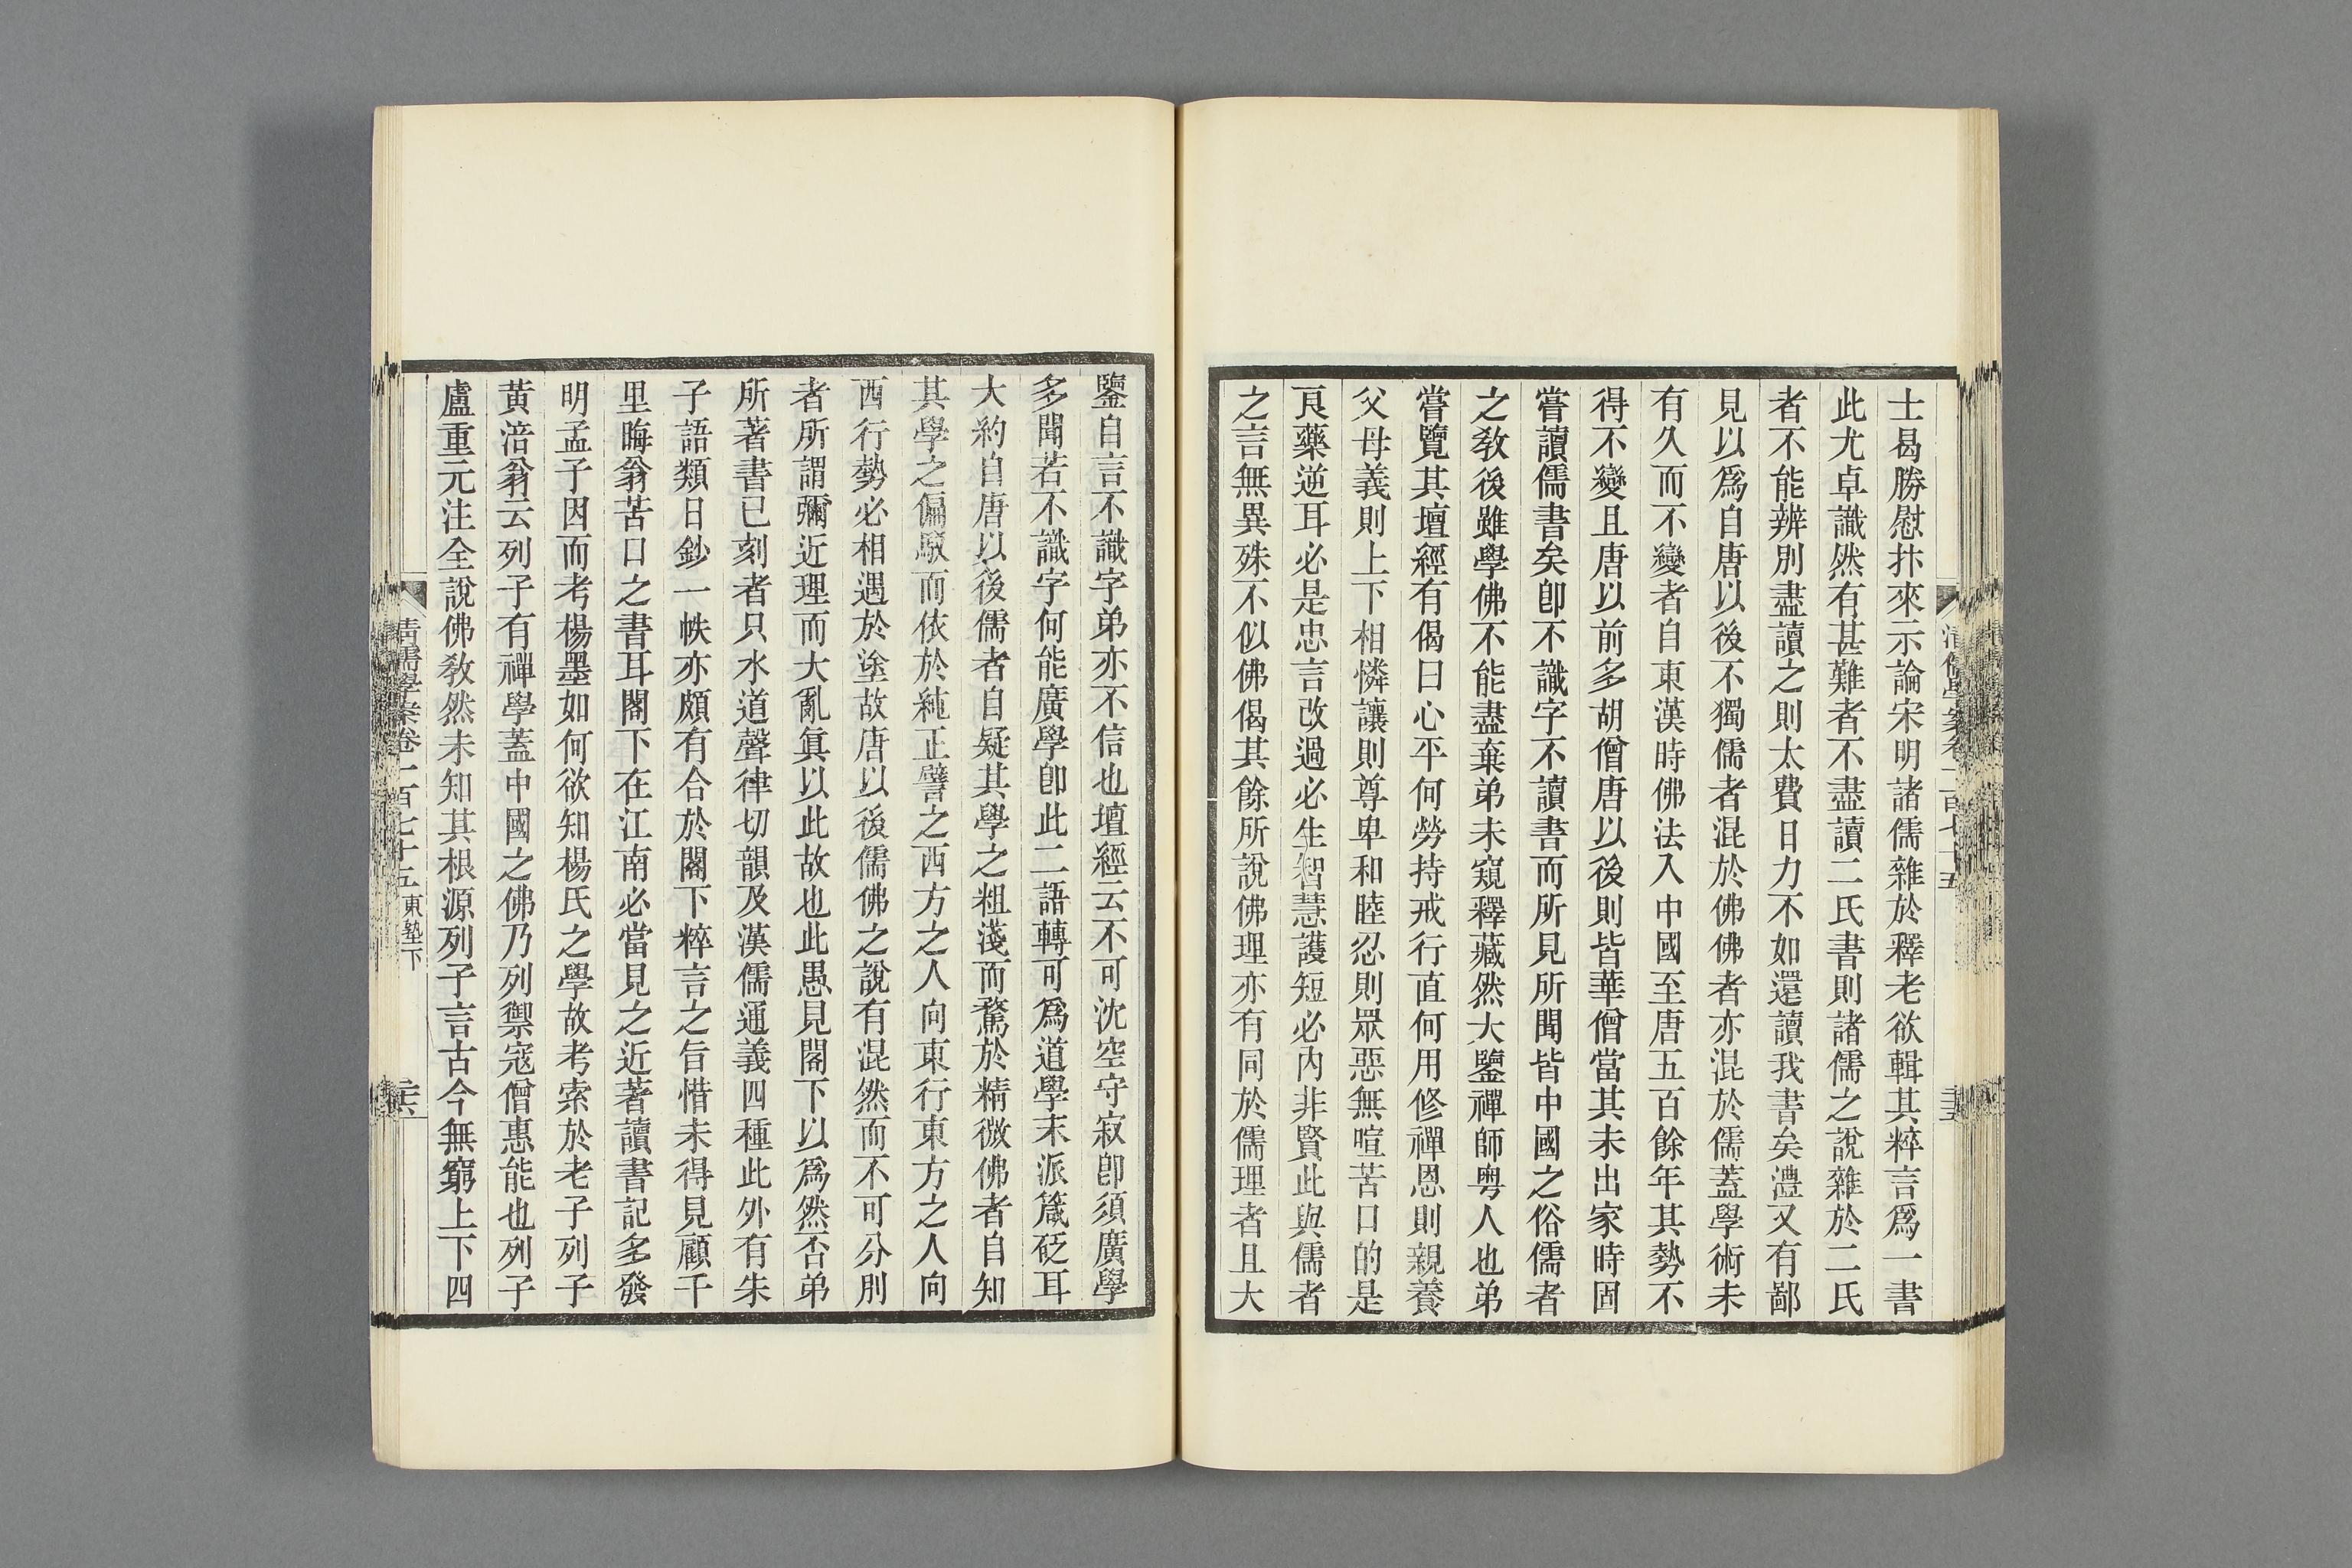 士曷勝慰抃來示論宋明諸儒雜於釋老欲輯其粹言爲一書
此尤卓識然有甚難者不盡讀二氏書則諸儒之說雜於二氏
者不能辨別盡讀之則太費日力不如還讀我書矣澧又有鄙
見以爲自唐以後不獨儒者混於佛佛者亦混於儒蓋學術未
有久而不變者自東漢時佛法入中國至唐五百餘年其勢不
得不變且唐以前多胡僧唐以後則皆華僧當其未出家時固
嘗讀儒書矣卽不識字不讀書而所見所聞皆中國之俗儒者
之敎後雖學佛不能盡棄弟未窺釋藏然大鑒禪師粵人也弟
嘗覽其壇經有偈曰心平何勞持戒行直何用修禪恩則親養
父母義則上下相憐讓則尊卑和睦忍則眾惡無喧苦口的是
良藥逆耳必是忠言改過必生智慧護短必內非賢此與儒者
之言無異殊不似佛偈其餘所說佛理亦有同於儒理者且大
鑒自言不識字弟亦不信也壇經云不可沈空守寂卽須廣學
多聞若不識字何能廣學卽此二語轉可爲道學末派箴砭耳
大約自唐以後儒者自疑其學之粗淺而騖於精微佛者自知
其學之偏駁而依於純正譬之西方之人向東行東方之人向
西行勢必相遇於塗故唐以後儒佛之說有混然而不可分別
者所謂彌近理而大亂眞以此故也此愚見閣下以爲然否弟
所著書已刻者只水道聲律切韻及漢儒通義四種此外有朱
子語類日鈔一帙亦頗有合於閣下粹言之旨惜未得見顧千
里晦翁苦口之書耳閣下在江南必當見之近著讀書記多發
明孟子因而考楊墨如何欲知楊氏之學故考索於老子列子
黃涪翁云列子有禪學蓋中國之佛乃列禦寇僧惠能也列子
盧重元注全說佛敎然未知其根源列子言古今無窮上下四
清儒學案卷一百七十五 東塾下